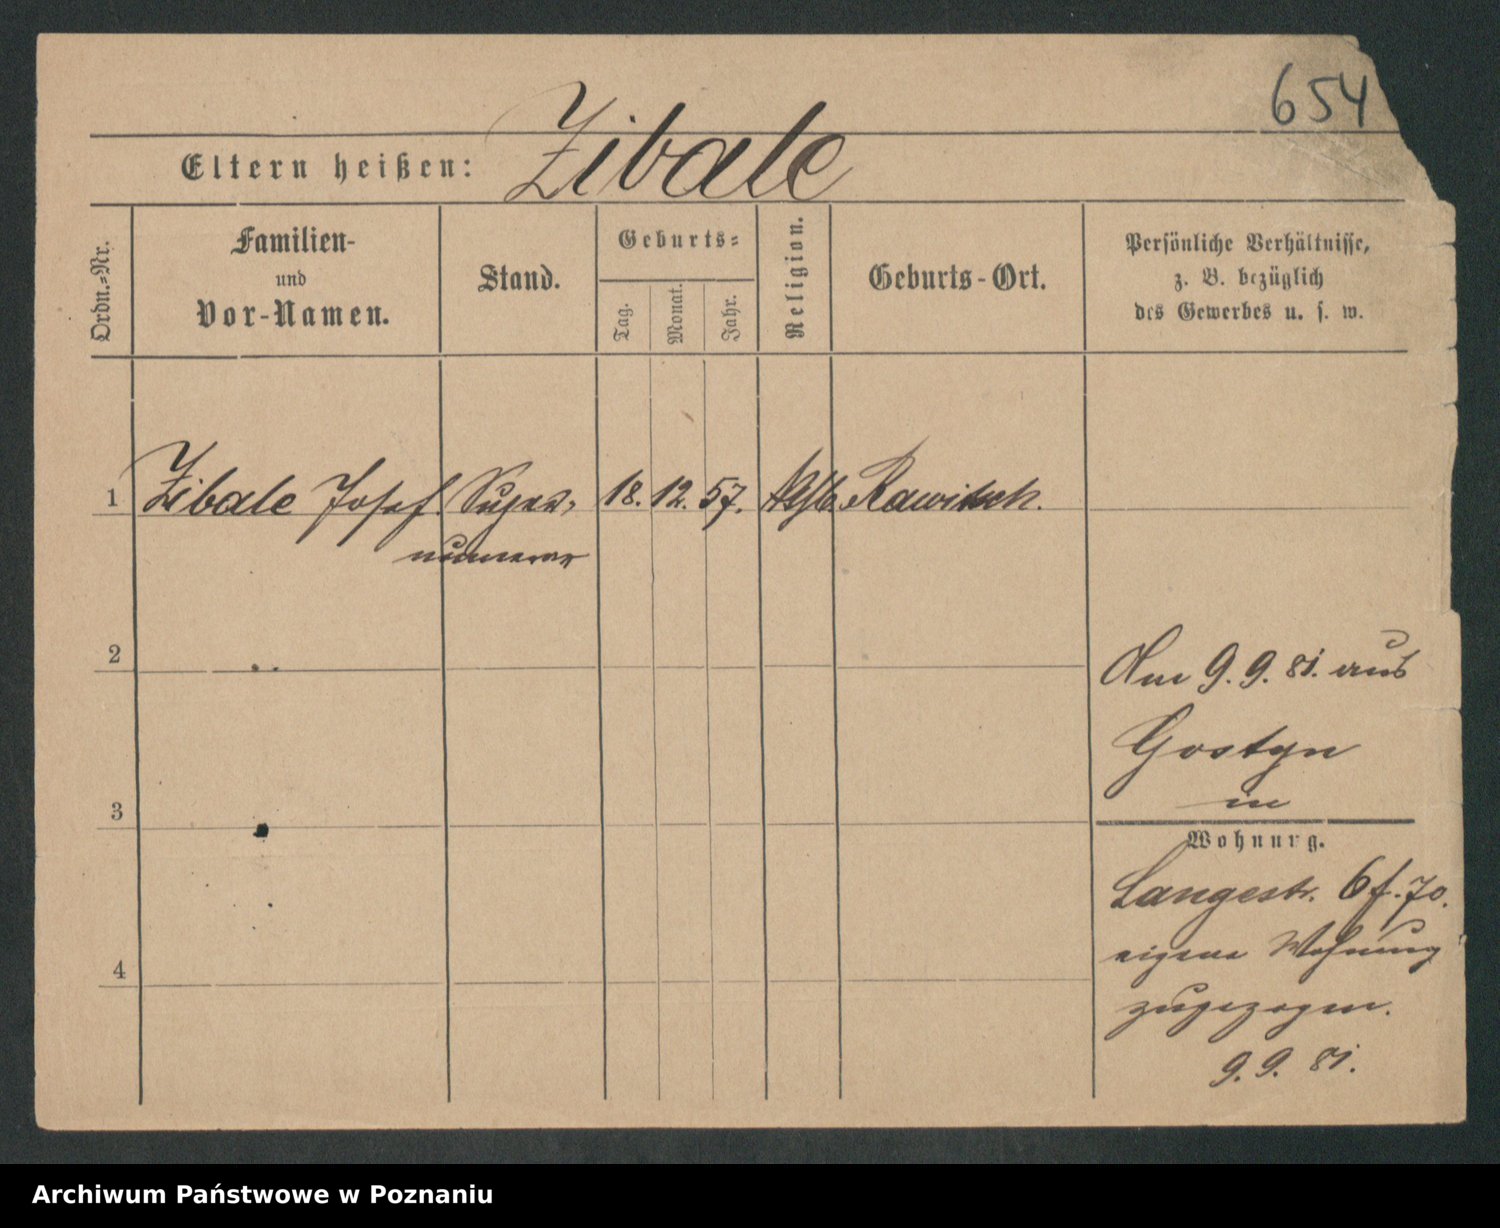 654
Eltern heißen: Zibale
Ordn.-Nr.
Familien-
und
Vor-Namen.
Stand.
Geburts-
Tag.
Monat.
Jahr.
Religion.
Geburts-Ort.
Persönliche Verhältnisse,
z. B. bezüglich
des Gewerbes u. s. w.
1 Zibale Josef Super- 18. 12. 57. Rawitsch.
numerar
2
3
4
Am 9. 9. 81. aus
Gostyn
in
Wohnung.
Langestr. 6 f. 70.
eigene Wohnung
zugezogen.
9. 9. 81.
Archiwum Państwowe w Poznaniu